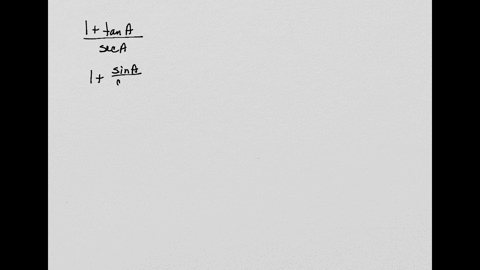 1 + tan A
sec A
1 + sin A